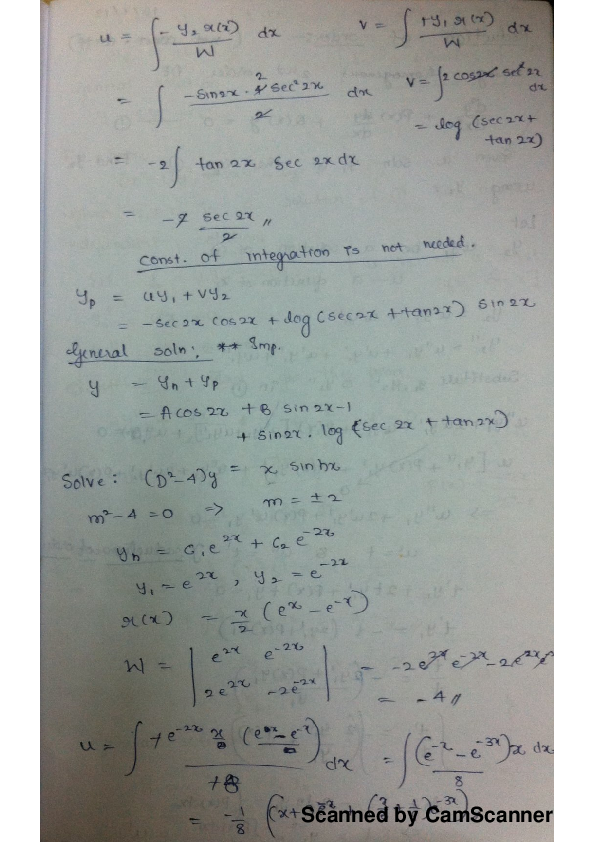 u = ∫ -y₂ r(x) / W dx    v = ∫ +y₁ r(x) / W dx
= ∫ -sin2x · 4 sec² 2x / 2 dx    v = ∫ 2 cos2x sec² 2x dx
= log (sec2x + tan 2x)
= -2 ∫ tan 2x sec 2x dx
= -2 sec 2x / 2 //
const. of integration is not needed.
y_p = uy₁ + vy₂
= -sec 2x cos2x + log (sec2x + tan2x) sin 2x
General soln: ** Imp.
y = y_h + y_p
= A cos 2x + B sin 2x - 1
+ sin2x . log (sec 2x + tan 2x)
Solve : (D²-4)y = x sinhx
m²-4 = 0 => m = ± 2
y_h = c₁e^{2x} + c₂e^{-2x}
y₁ = e^{2x} , y₂ = e^{-2x}
r(x) = x/2 (e^x - e^{-x})
W = | e^{2x} e^{-2x} | = -2e^{2x} e^{-2x} - 2e^{2x} e
| 2e^{2x} -2e^{-2x} | = -4 //
u = ∫ +e^{-2x} x (e^x - e^{-x}) / +8 dx = ∫ (e^{-x} - e^{-3x}) x / 8 dx
= -1/8
Scanned by CamScanner